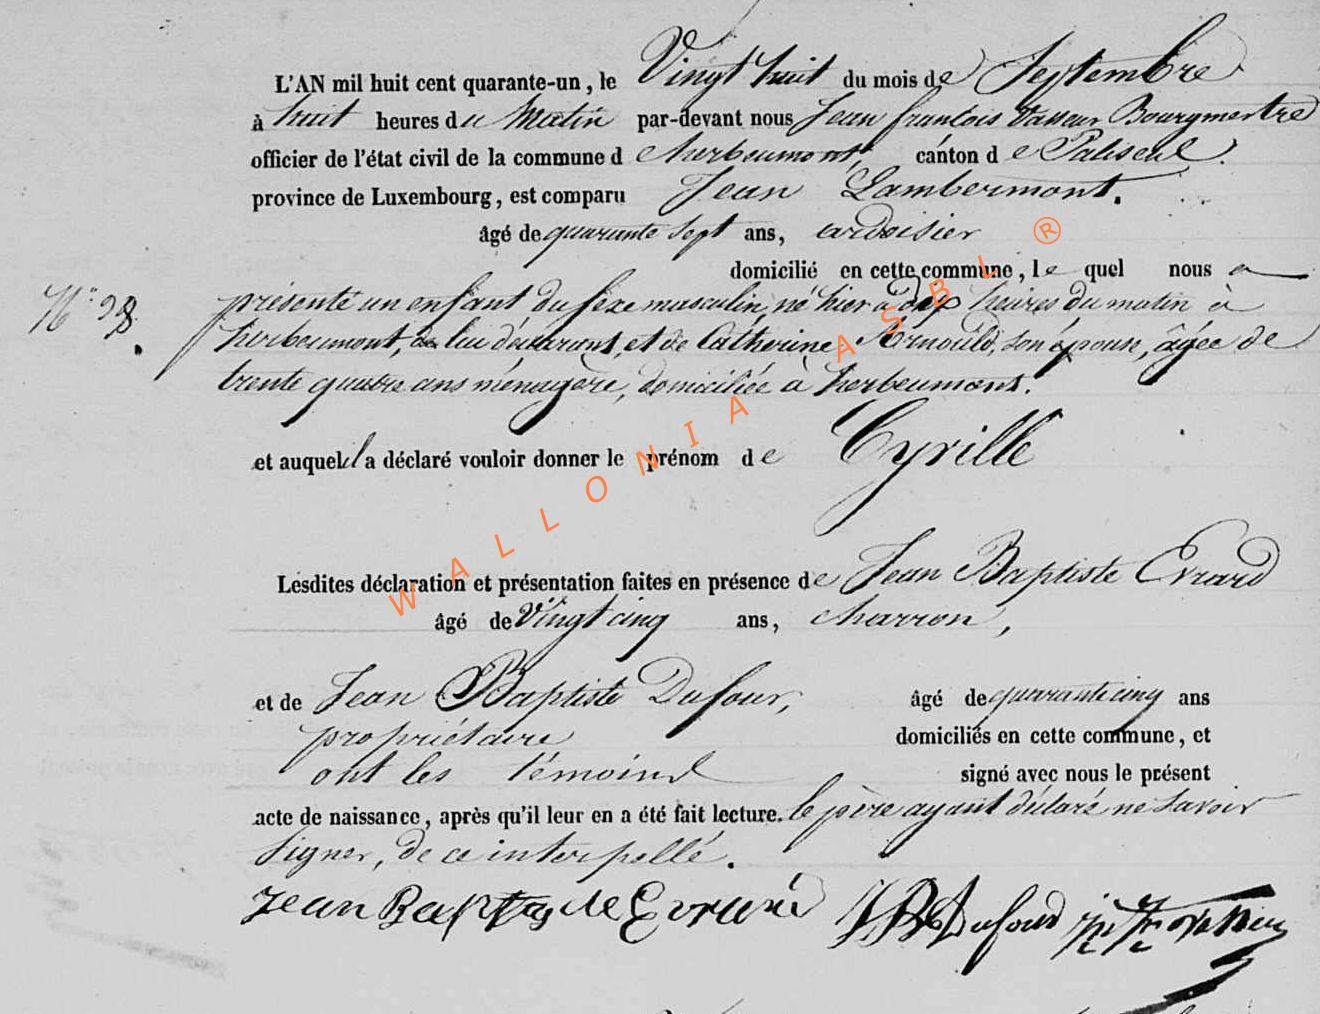 L'AN mil huit cent quarante-un, le Vingt huit du mois de Septembre
à huit heures du Matin par-devant nous Jean francois Vasseur Bourgmestre
officier de l'état civil de la commune d'herbeumont, canton de Paliseul.
province de Luxembourg, est comparu Jean Lambermont.
âgé de quarante sept ans, ardoisier
domicilié en cette commune, le quel nous a
N° 28.
présenté un enfant du sexe masculin, né hier à dix heures du matin à
herbeumont, de lui déclarant, et de Catherine Arnould, son épouse, âgée de
trente quatre ans ménagère, domiciliée à herbeumont.
et auquel il a déclaré vouloir donner le prénom de Cyrille
Lesdites déclaration et présentation faites en présence de Jean Baptiste Evrard
âgé de Vingt cinq ans, charron,
et de Jean Baptiste Dufour, âgé de quarante cinq ans
propriétaire domiciliés en cette commune, et
ont les témoins signé avec nous le présent
acte de naissance, après qu'il leur en a été fait lecture. le père ayant déclaré ne savoir
signer, de ce interpellé.
Jean Baptiste Evrard JB Dufour
WALLONIA ASBL ®